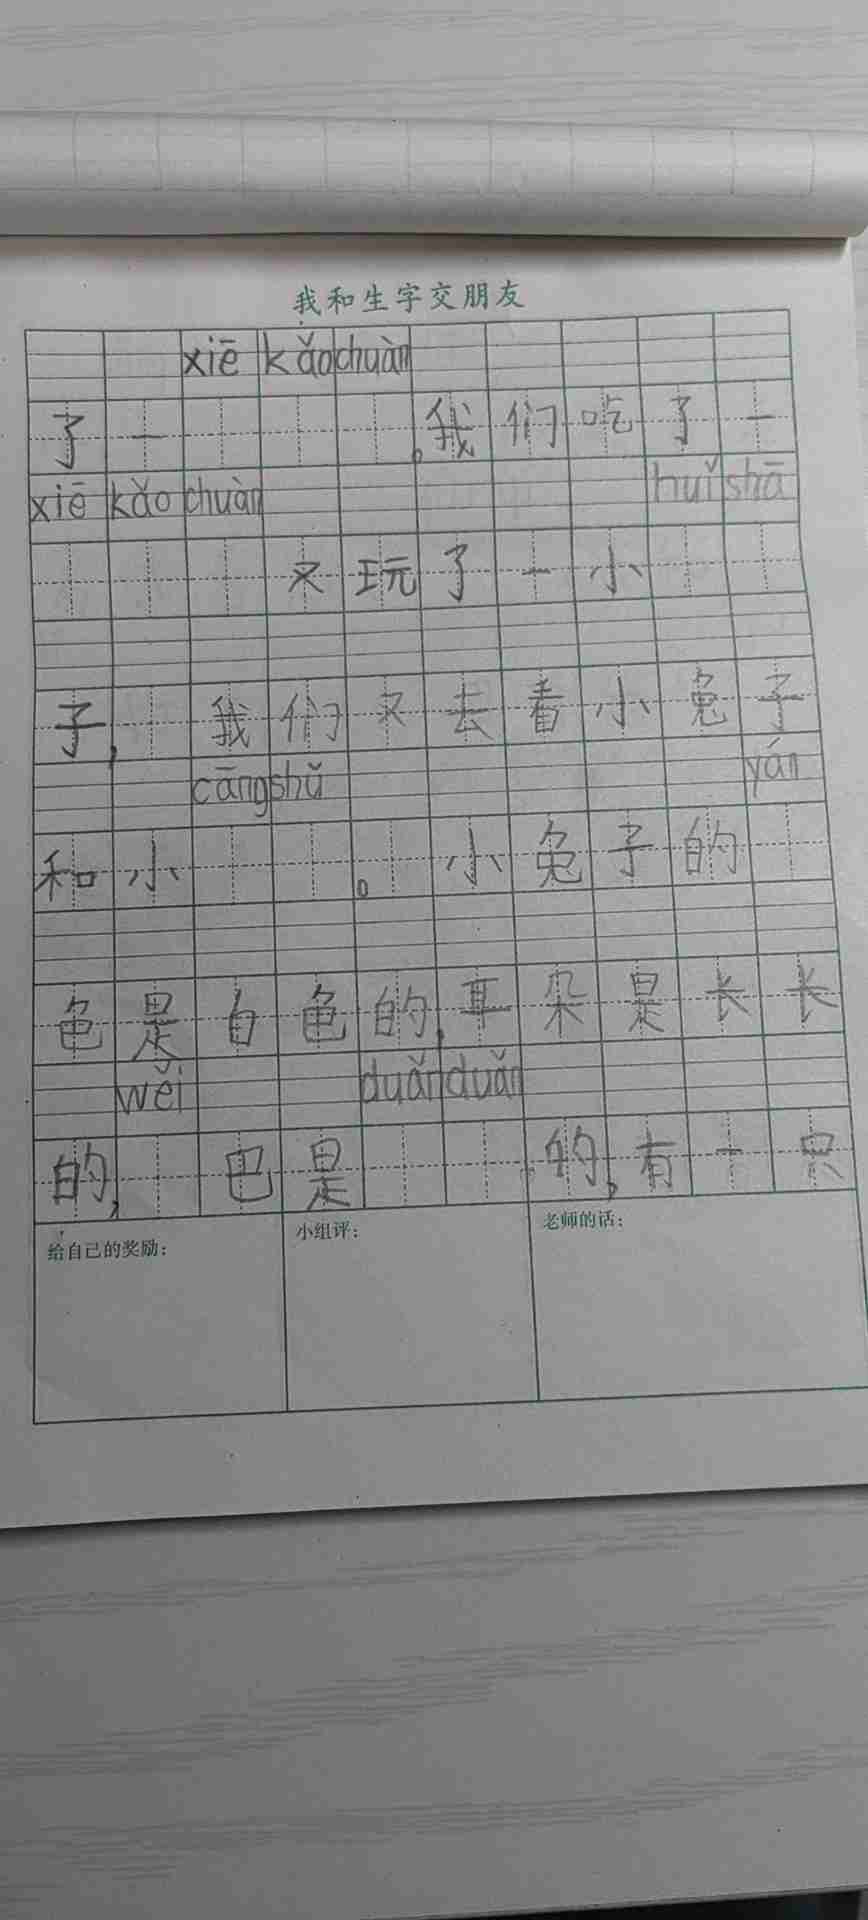 我和生字交朋友
xiē kǎo chuàn
了一。我们吃了一
xiē kǎo chuàn huǐ shā
又玩了一小
子，我们又去看小兔子
cāng shǔ yán
和小。小兔子的
色是白色的，耳朵是长长
wěi duǎn duǎn
的，巴是的，有一只
给自己的奖励：
小组评：
老师的话：